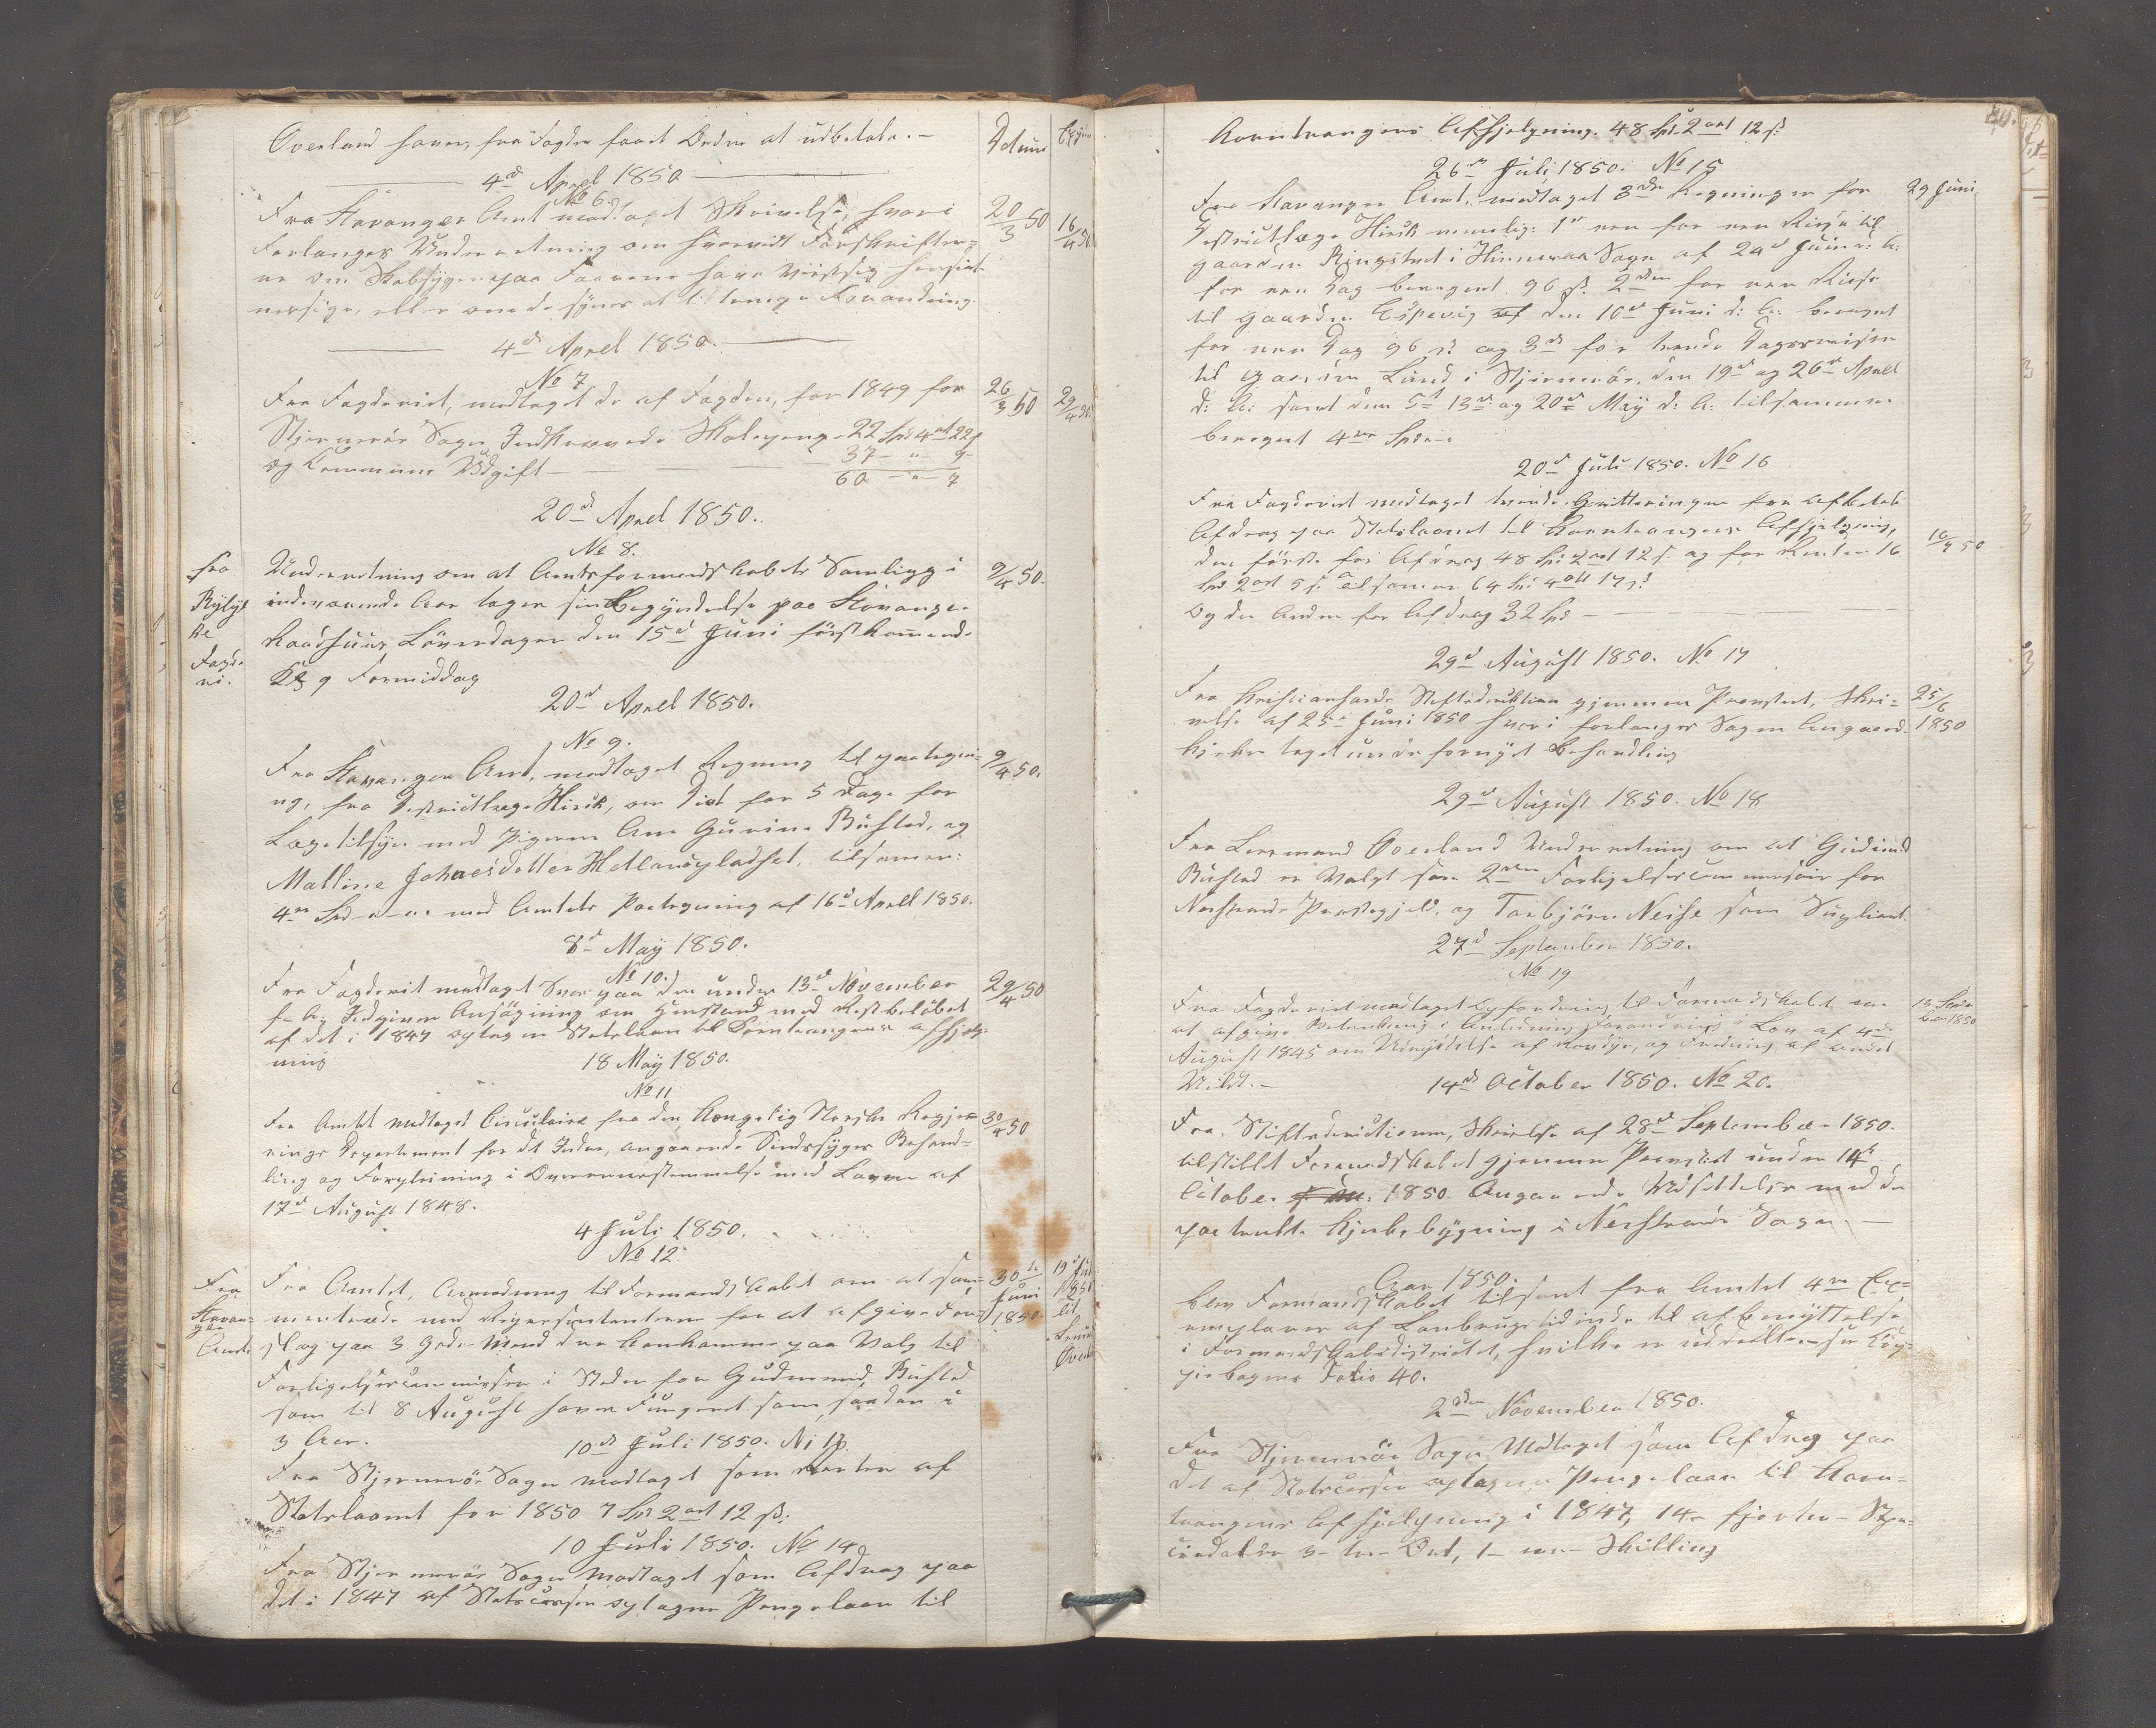 Overland haver fra Fogden faaet Ordre at udbetale.—
Datum
4de April 1850
No 6.
Fra Stavanger Amt modtaget Skrivelse, hvori 20/3 50 16/4 50
Forlanges Underretning om hvorvidt Forskrifter=
ne om Skabsygen paa Faarene have viist sig hensigt
messige, eller om de synes at tiltrenge Forandring.
4de April 1850.
No 7
Fra Fogderiet, modtaget de af Fogden, for 1849 for 26/3 50 29/4 50
Stjernerøe Sogn Indkrævede Skolepenge 22 Spd 4 ort 22 s
og Commune Udgift — 37 — " — 9
60 — " — 7
20de April 1850.
No 8.
fra Underretning om at Amtsformandskabets Samling i 9/4 50.
Ryfyl indeværende Aar tager sin Begyndelse paa Stavanger
ke Raadhuus Löverdagen den 15de Juni förstkommende
Fogde
ri. Kl 9 Formiddag
20de April 1850.
No 9.
Fra Stavanger Amt, modtaget Regning til paategni= 9/4 50.
ng, fra Destrictlæge Hiorth, om Diæt for 5 Dage for
Lægetilsyn med Pigerne Ane Gurine Buhsted, og
Malline Johnesdatter Hetlandspladset, tilsamen:
4re Spd —"—" med Amtets Paategning af 16de April 1850.
8de May 1850.
No 10.
Fra Fogderiet modtaget Svar paa den under 13de November 29/4 50
f. A. Indgiven Ansögning om Henstand med Restbelöbet
af det i 1847 optagne Statslaan til Korntrangens afhjelp-
ning
18 May 1850.
No 11
Fra Amtet modtaget Circulaire fra den Kongelig Norske Regje= 30/4 50
rings Departement for det Indre, angaaende Sindssyges Behand=
ling og Forpleining i Overeensstemmelse med Loven af
17de August 1848.
4 Juli 1850.
No 12.
Fra Fra Amtet, Anmodning til Formandskabet om at sam= 30te
Stavan= mentræde med Representanterne for at afgive Fors= Juni
ger
Amt slag paa 3 gode Mænd der kan komme paa Valg til 1850.
Forligelsescommissær i Stedet for Gudmund Buhsted
som til 8 August haver Fungeret som saadan i
3 Aar.
10de Juli 1850. No 13.
Fra Stjernerøe Sogn modtaget som Renter af
Statslaanet for 1850 7 Spd 2 ort 12 ß.
10 Juli 1850. No 14
Fra Stjernerøe Sogn modtaget som Afdrag paa
det i 1847 af Statscassen optagne Pengelaan til
Korntrangens Afhjelpning. 48 Spd. 2 ort 12 ß.
26de Juli 1850. No 15
Fra Stavanger Amt, modtaget 3de Regninger for 29 Juni
Destrictlæge Hiorth nemlig: 1te een for een Reise til
Gaarden Ringstved i Hinneraa Sogn af 24de Juni d: A:
for een Dag beregnet 96 ß. 2den for een Reise
til Gaarden Espevig af den 10de Juni d: A: beregnet
for een Dag 96 ß og 3de for trende Dagsreiser
til Gaarden Lund i Stjernerøe, den 19de og 26de April
d: A: samt den 5te 13de og 20de May d: A: tilsammen
beregnet 4re Spd.—
20de Juli 1850. No 16
Fra Fogderiet modtaget tvende Qvitteringer for afbetalt
Afdrag paa Statslaanet til Korntrangens Afhjelpning,
den förste for Afdrag 48 Spd 2 ort 12 ß. og for Renter 16 16/7 50
Spd 2 ort 5 ß. tilsammen 64 Spd 4 ort 17 ß
Og den Anden for Afdrag 32 Spd —
29de August 1850. No 17
Fra Christiansands Stiftsdirektion gjennem Provsten, Skri= 25/6
velse af 25de Juni 1850 hvori forlanges Sagen Angaaende 1850
Kirken taget under fornyet Behandling
29de August 1850. No 18
Fra Lensmand Overland Underretning om at Gudmund
Buhsted er Valgt som 2den Forligelsescommissair for
Nerstrands Prestegjeld, og Torbjörn Neise som Supleant.
27de September 1850.
No 19
Fra Fogderiet modtaget Opfordring til Formandskabet om 13 Septem
at afgive Betenkning i Anledning Forandring i Lov af 4de ber 1850
August 1845 om Udryddelse af Rovdyr, og Fredning af andet
Vildt.—
14de October 1850. No 20.
Fra Stiftsdirectionen, Skrivelse af 28de September 1850.
tilstillet Formandskabet gjennem Provsten under 14de
October 1850. Angaaende Udsettelse med den
paatenkte Kirkebygning i Nerstrands Sogn —
Aar 1850.
blev Formandskabet tilsent fra Amtet 4re Ex=
emplarer af Lovbrugstidende til afbenyttelse
i Formandskabsdistrictet, hvilke er uddeelte. see Kop=
piebogens Folio 40.
2den November 1850.
Fra Stjernerøe Sogn Modtaget som Afdrag paa
det af Statscassen optagne Pengelaan til Korn=
trangens Afhjelpning i 1847, 14— fjorten— Spe=
ciedaler 3— tre— Ort, 1— een— Skilling